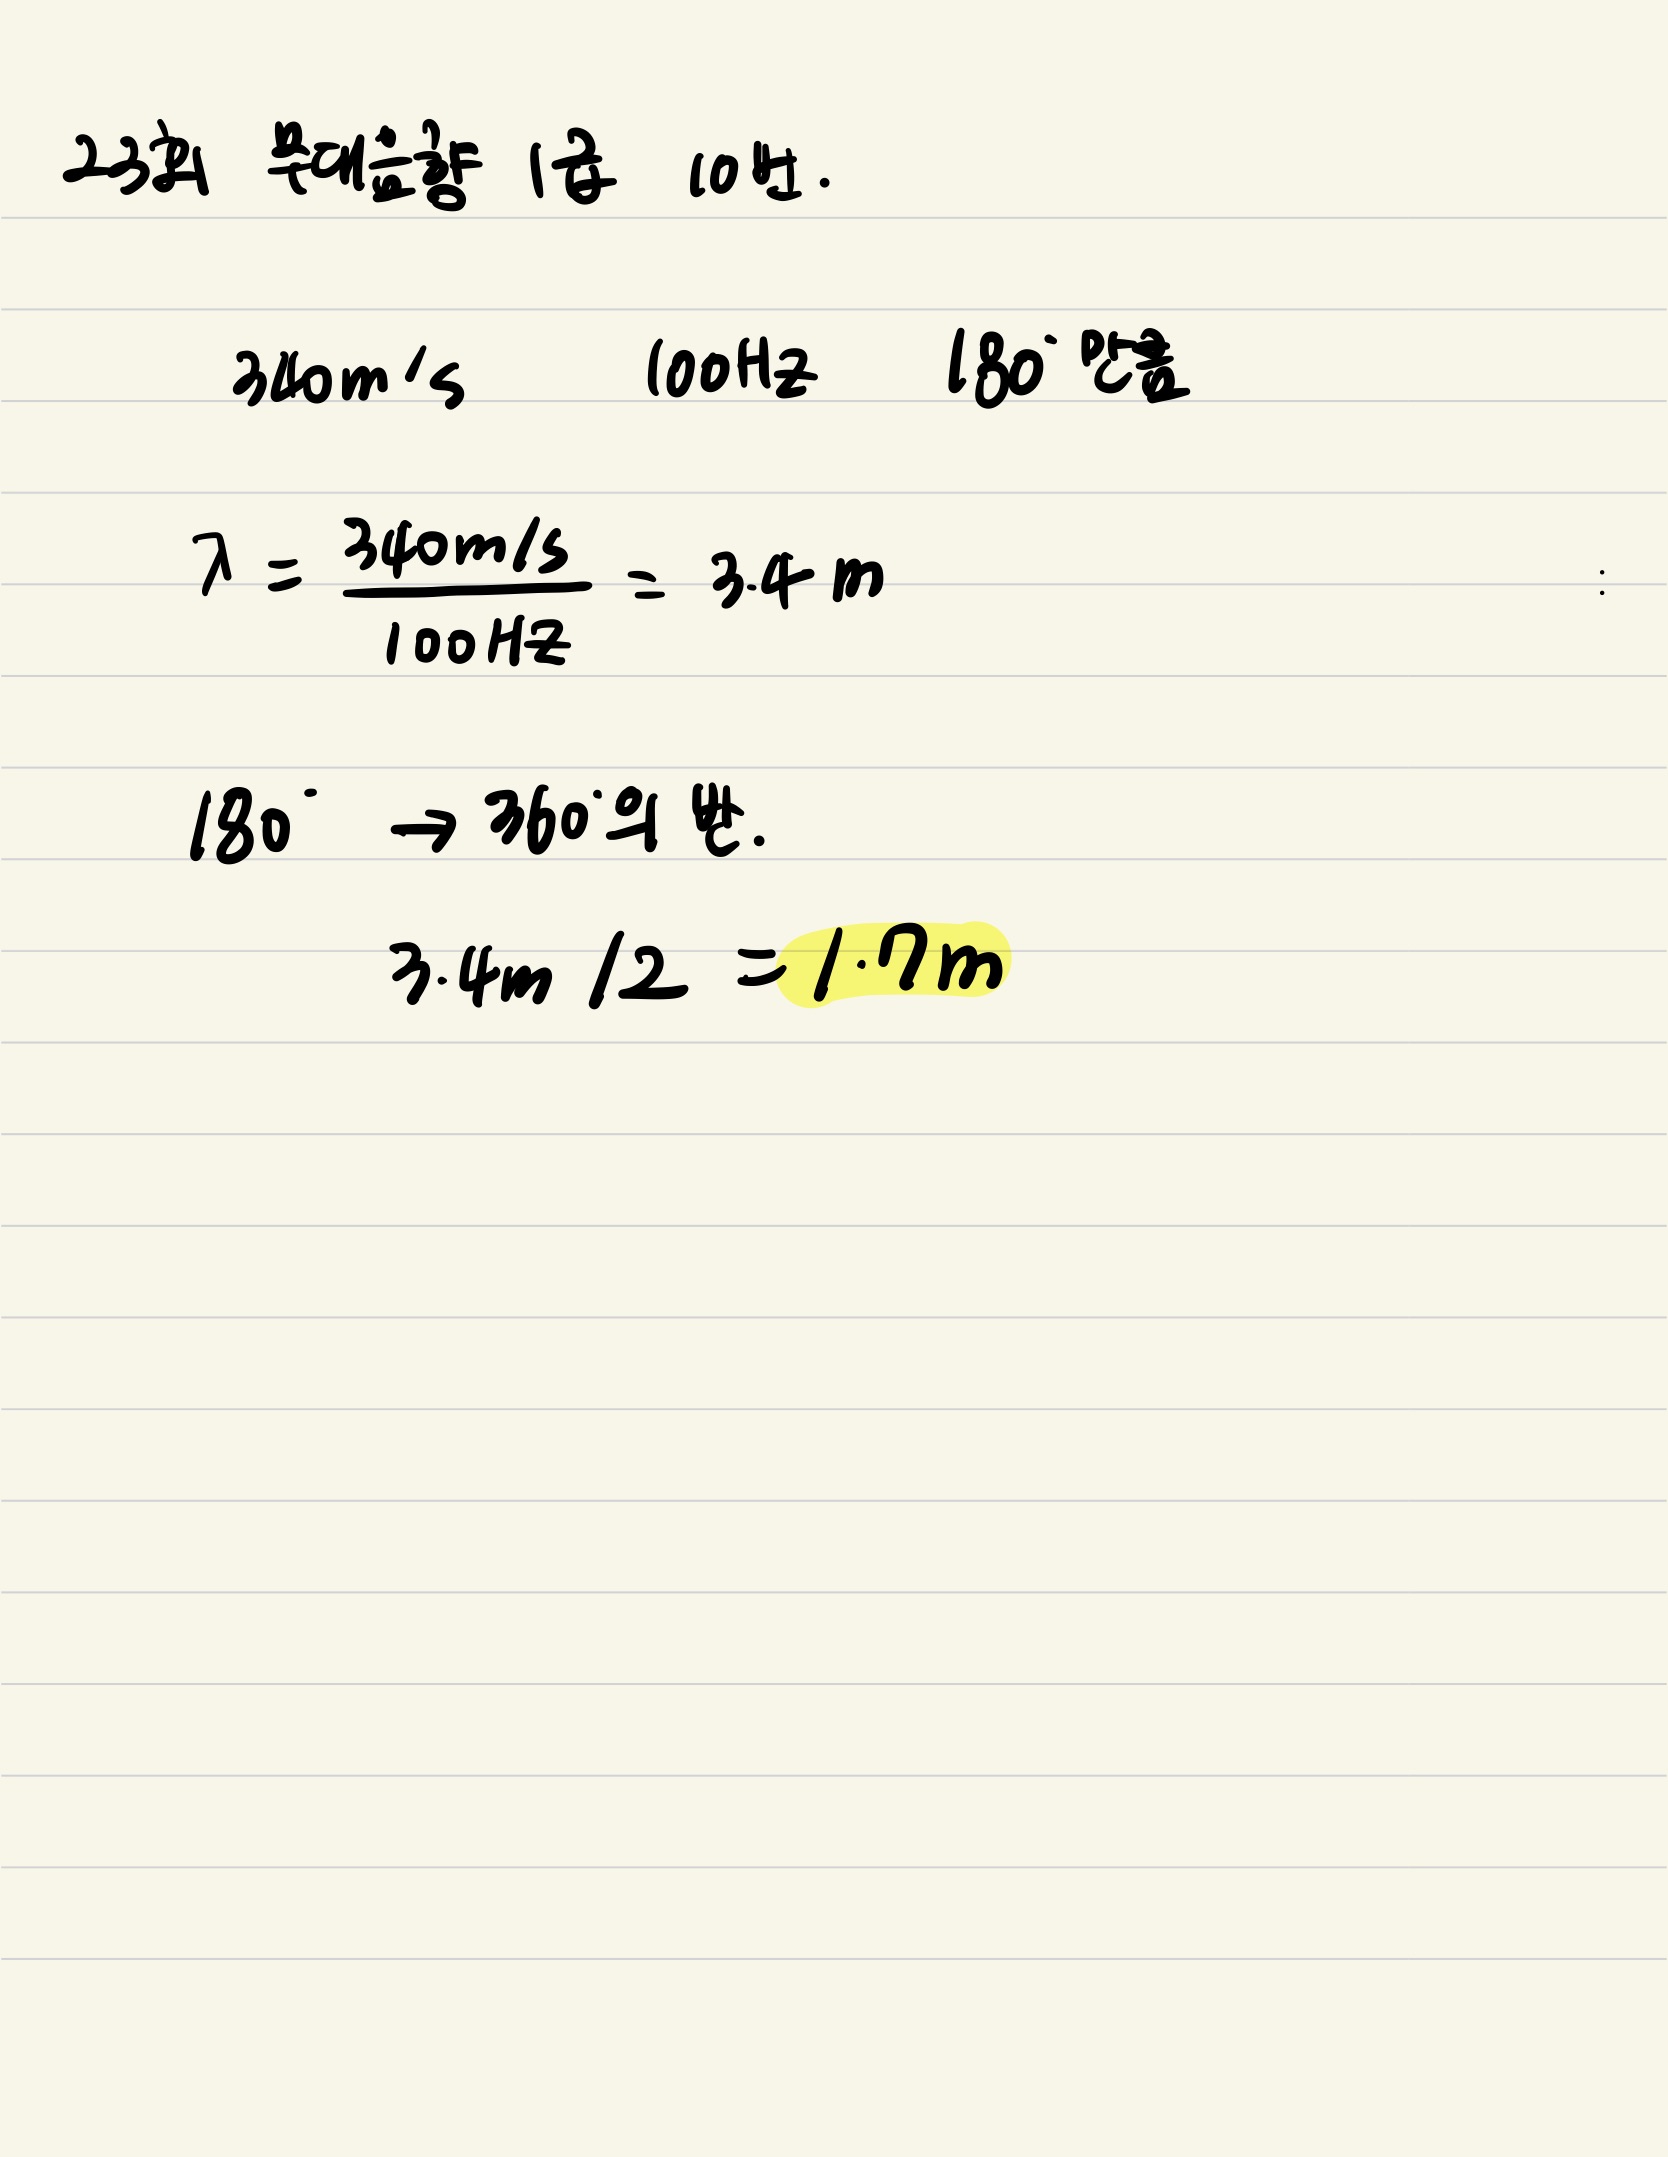 23회 무대음향 1급 10번.
340m/s 100Hz 180° 만큼
λ = 340m/s / 100HZ = 3.4 m
:
180° → 360°의 반.
3.4m /2 = 1.7m